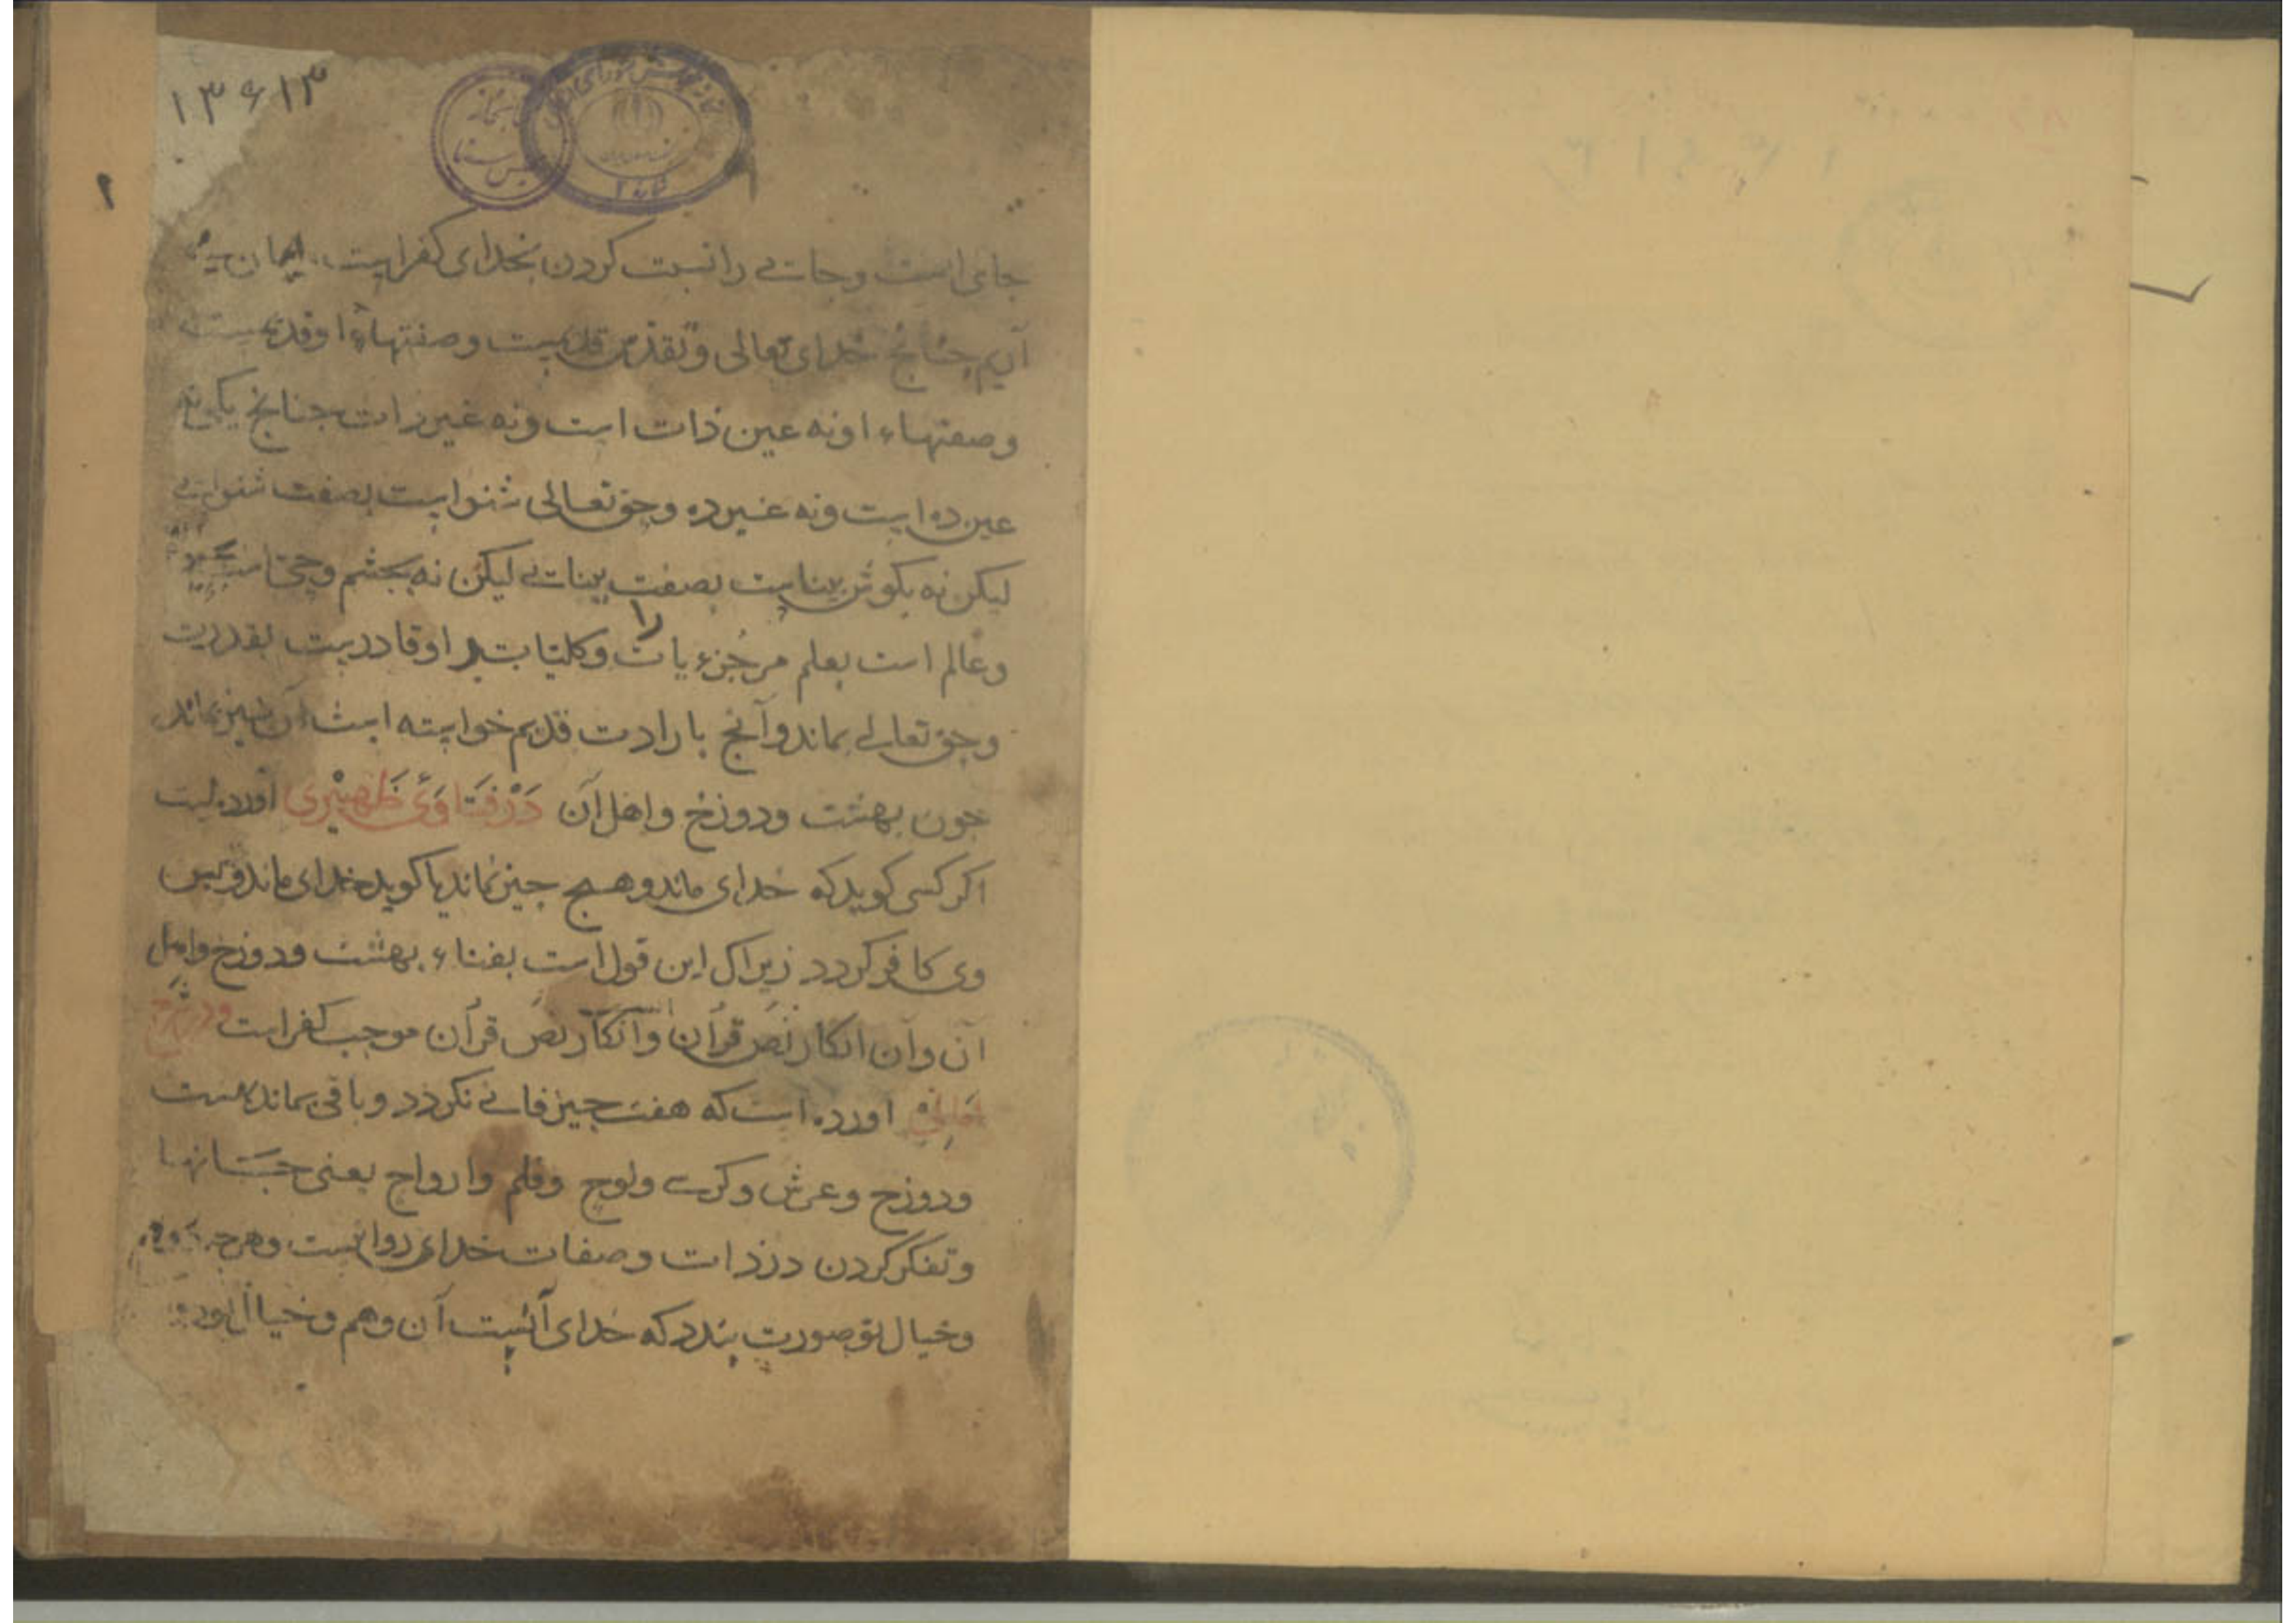 ۱۳۶۱۳
۲
جای است و جائے را نسبت کردن بخدای کفر است
خدای تعالی و تقدس قدیمست و صفتهاء او قدیمست
وصفتهاء او نه عین ذات است و نه غیر ذات جنانج یکی نه
عین ده است و نه غیر ده و حق تعالی شنواست بصفت شنوائے
لیکن نه بکوش بیناست بصفت بینائے لیکن نه بجشم و
وعالم است بعلم مر جزءیات وکلیات را او قادرست بقدرت
وحق تعالے بماند وآنج بارادت قدیم خواسته است آن نیز بماند
جون بهشت ودوزخ واهل آن دَرْ فَتَاوَیٔ ظَهِیْرِی آورده است
اکر کسی کوید که خدای ماند و هیج جیز نماند یا کوید خدای ماند و بس
وی کافر کردد زیراک این قول است بفناء بهشت ودوزخ واهل
آن وآن انکار نص قرآن وانکار نص قرآن موجب کفر است
اورده است که هفت جیز فانے نکردد و باقی بماند بهشت
ودوزخ وعرش وکرسے ولوح وقلم وارواح یعنی جانها
وتفکر کردن در ذات وصفات خدای روا نیست وهرجه
وخیال تو صورت بندد که خدای آنست آن وهم وخیال بود